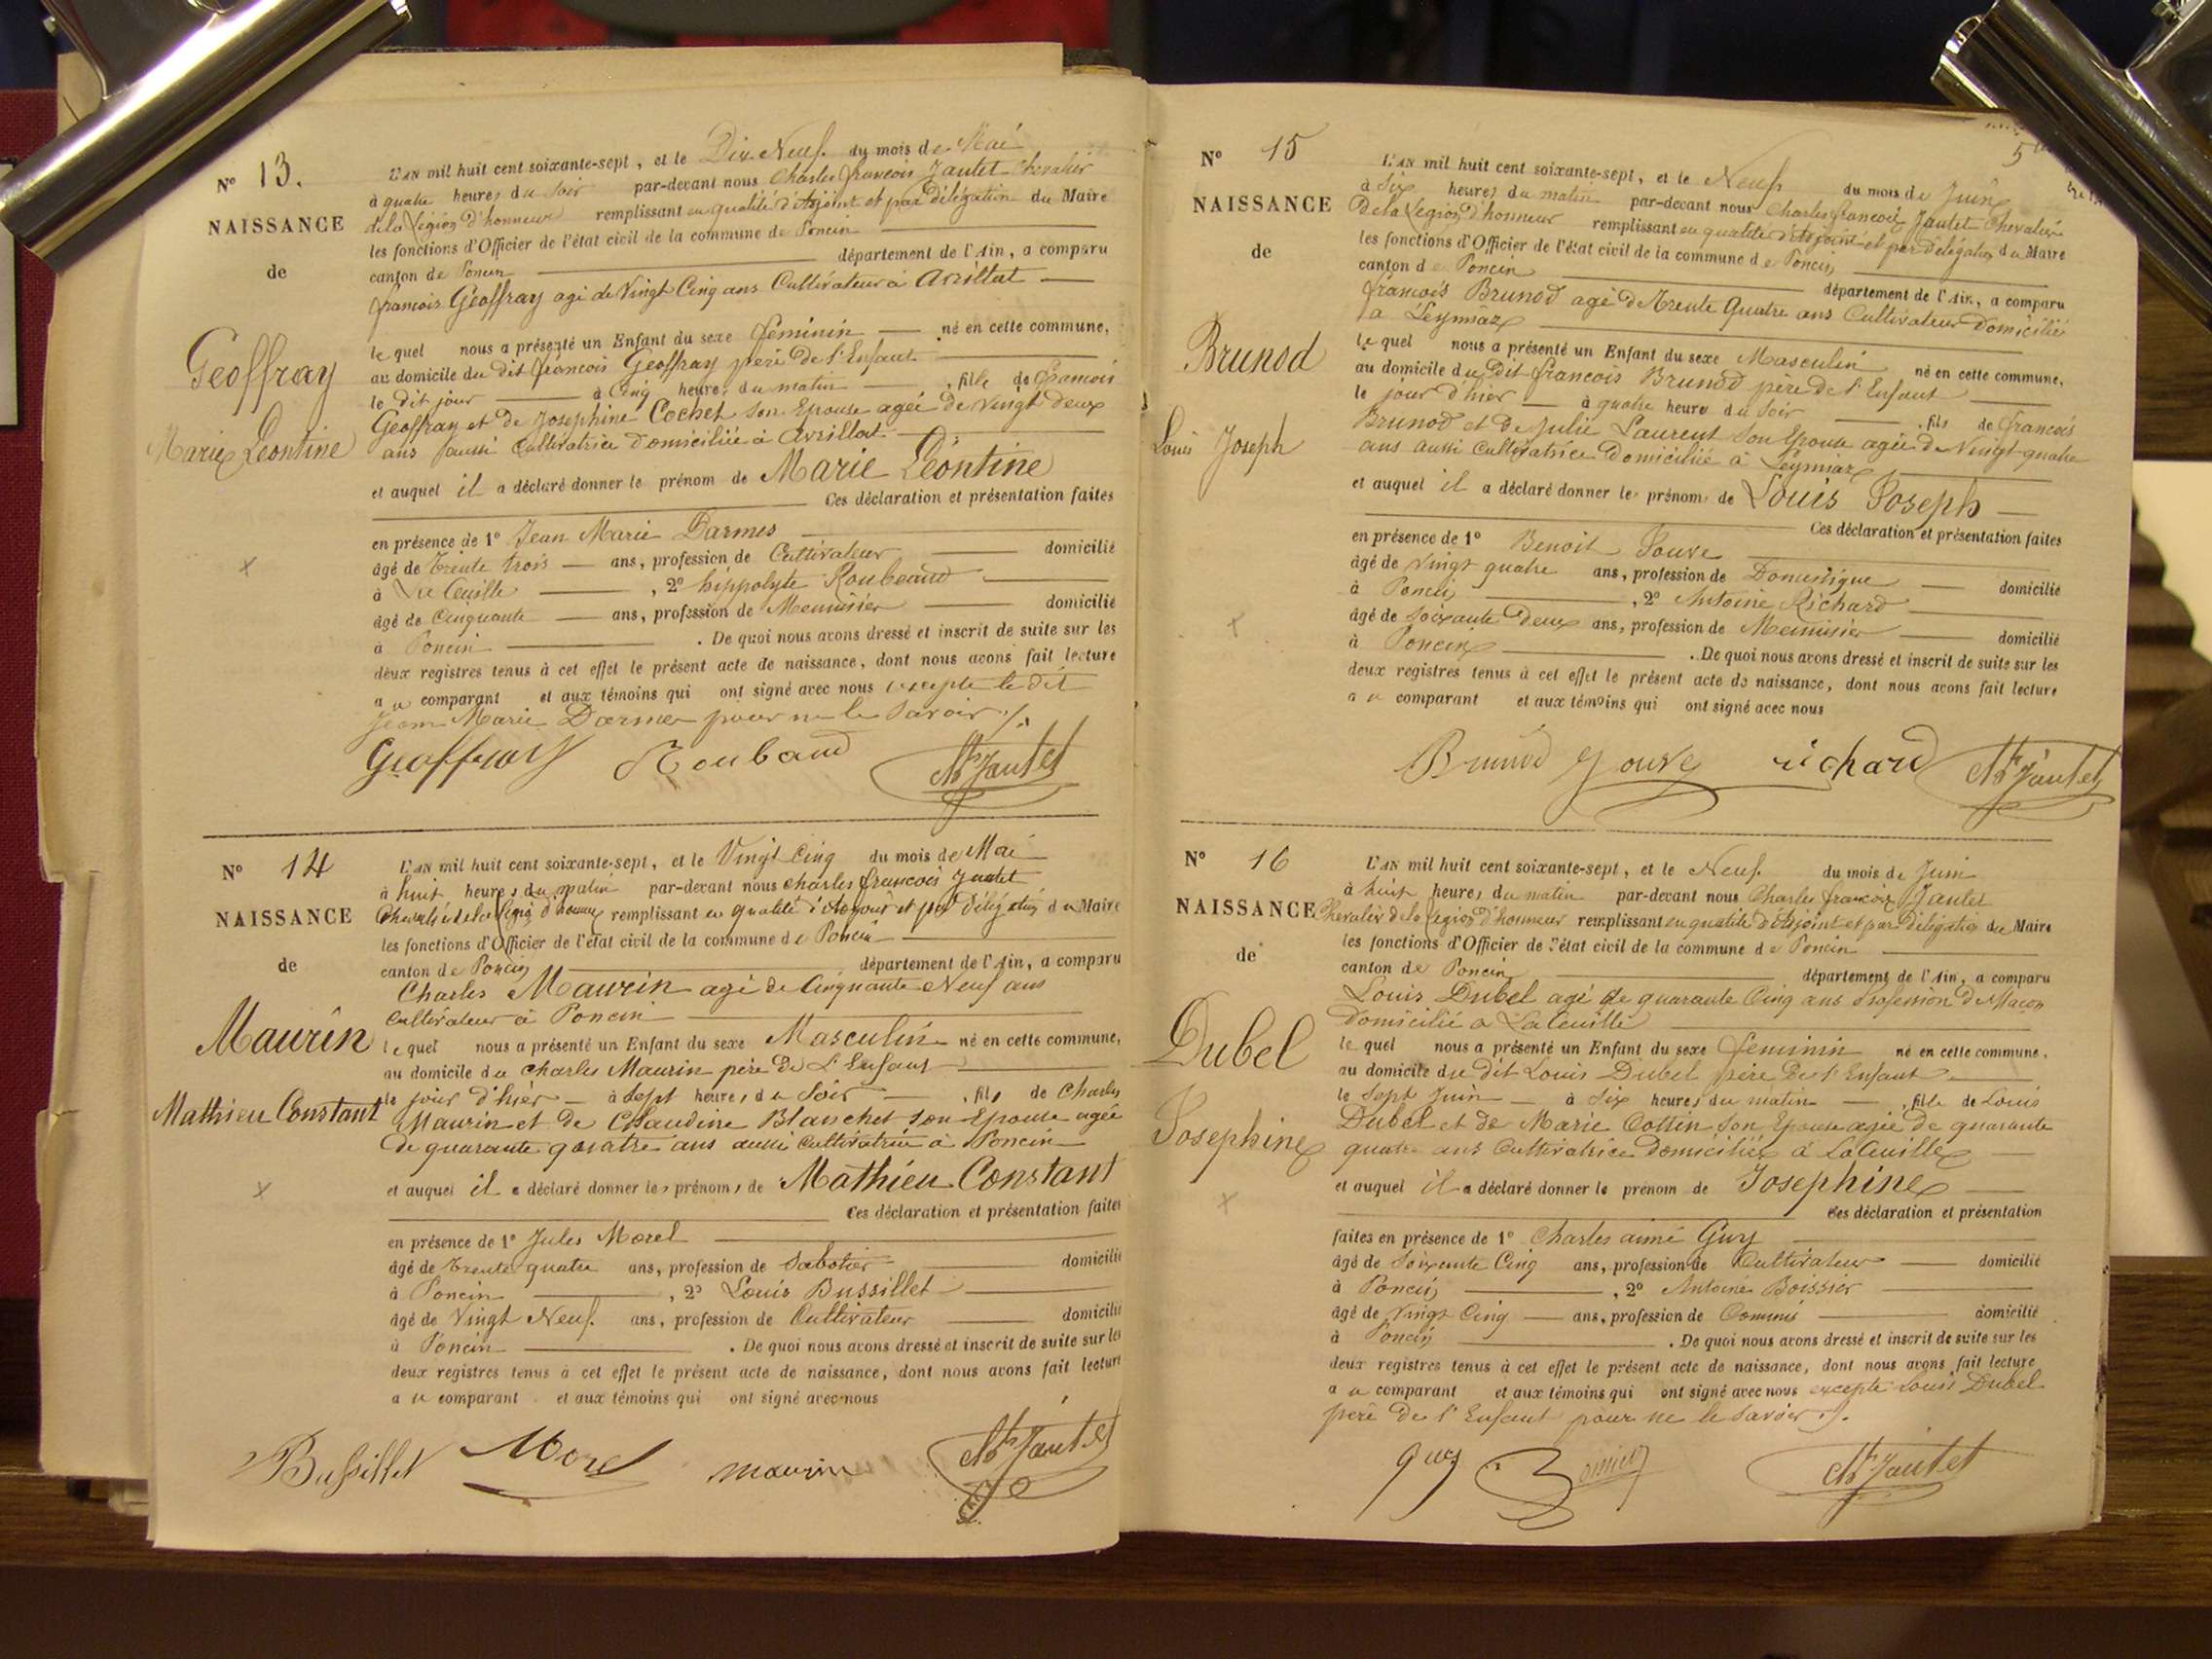 N° 13.
NAISSANCE
de
Geoffray
Marie Leontine
L'AN mil huit cent soixante-sept, et le Dix Neuf. du mois de Mai
à quatre heures du soir par-devant nous Charles françois Jautet Chevalier
de la Légion d'honneur remplissant en qualité d'adjoint et par délégation du Maire
les fonctions d'Officier de l'état civil de la commune de Poncin
canton de Poncin département de l'Ain, a comparu
françois Geoffray agé de Vingt Cinq ans Cultivateur à Avrillat
le quel nous a présenté un Enfant du sexe féminin né en cette commune,
au domicile du dit françois Geoffray père de l'Enfant
le dit jour à Cinq heures du matin , fille de françois
Geoffray et de Josephine Cochet son Epouse agée de vingt deux
ans aussi Cultivatrice domiciliée à Avrillat
et auquel il a déclaré donner le prénom de Marie Léontine
Ces déclaration et présentation faites
en présence de 1° Jean Marie Darmes
âgé de Trente trois ans, profession de Cultivateur domicilié
à La Cueille , 2° hippolyte Roubaud
âgé de Cinquante ans, profession de Menuisier domicilié
à Poncin . De quoi nous avons dressé et inscrit de suite sur les
deux registres tenus à cet effet le présent acte de naissance, dont nous avons fait lecture
au comparant et aux témoins qui ont signé avec nous excepté le dit
Jean Marie Darmes pour ne le savoir ./.
Geoffray Roubaud Ch Jautet
N° 14
NAISSANCE
de
Maurin
Mathieu Constant
L'AN mil huit cent soixante-sept, et le Vingt Cinq du mois de Mai
à huit heures du matin par-devant nous charles françois Jautet
Chevalié de la Légion d'honneur remplissant en qualité d'adjoint et par délégation du Maire
les fonctions d'Officier de l'état civil de la commune de Poncin
canton de Poncin département de l'Ain, a comparu
Charles Maurin agé de Cinquante Neuf ans
Cultivateur à Poncin
le quel nous a présenté un Enfant du sexe Masculin né en cette commune,
au domicile du charles Maurin père de l'Enfant
le jour d'hier à Sept heures du Soir , fils de Charles
Maurin et de Claudine Blanchet son Epouse agée
de quarante quatre ans aussi cultivatrice à Poncin
et auquel il a déclaré donner les prénoms de Mathieu Constant
Ces déclaration et présentation faites
en présence de 1° Jules Morel
âgé de trente quatre ans, profession de Sabotier domicilié
à Poncin , 2° Louis Bussillet
âgé de Vingt Neuf. ans, profession de Cultivateur domicilié
à Poncin . De quoi nous avons dressé et inscrit de suite sur les
deux registres tenus à cet effet le présent acte de naissance, dont nous avons fait lecture
au comparant et aux témoins qui ont signé avec nous
Bussillet Morel maurin Ch Jautet
N° 15
NAISSANCE
de
Brunod
Louis Joseph
L'AN mil huit cent soixante-sept, et le Neuf du mois de Juin
à Six heures du matin par-devant nous Charles françois Jautet Chevalier
De la Légion d'honneur remplissant en qualité d'adjoint et par délégation du Maire
les fonctions d'Officier de l'état civil de la commune de Poncin
canton de Poncin département de l'Ain, a comparu
françois Brunod agé de Trente Quatre ans Cultivateur domicilié
à Leymiaz
le quel nous a présenté un Enfant du sexe Masculin né en cette commune,
au domicile du Dit françois Brunod père de l'Enfant
le jour d'hier à quatre heure du Soir , fils de françois
Brunod et de Julie Laurent son Epouse agée de Vingt quatre
ans aussi cultivatrice domiciliée à Leymiaz
et auquel il a déclaré donner les prénoms de Louis Joseph
Ces déclaration et présentation faites
en présence de 1° Benoit Jouve
âgé de vingt quatre ans, profession de Domestique domicilié
à Poncin , 2° Antoine Richard
âgé de soixante deux ans, profession de Menuisier domicilié
à Poncin . De quoi nous avons dressé et inscrit de suite sur les
deux registres tenus à cet effet le présent acte de naissance, dont nous avons fait lecture
au comparant et aux témoins qui ont signé avec nous
Brunod Jouve richard Ch Jautet
N° 16
NAISSANCE
de
Dubel
Josephine
L'AN mil huit cent soixante-sept, et le Neuf. du mois de Juin
à huit heures du matin par-devant nous Charles françois Jautet
Chevalier de la Légion d'honneur remplissant en qualité d'adjoint et par délégation du Maire
les fonctions d'Officier de l'état civil de la commune de Poncin
canton de Poncin département de l'Ain, a comparu
Louis Dubel agé de quarante Cinq ans Profession de Maçon
Domicilié à La Cueille
le quel nous a présenté un Enfant du sexe féminin né en cette commune,
au domicile du dit Louis Dubel père de l'Enfant
le Sept Juin à Six heures du matin , fille de Louis
Dubel et de Marie Cottin son Epouse agée de quarante
quatre ans Cultivatrice domiciliée à La Cueille
et auquel il a déclaré donner le prénom de Josephine
Ces déclaration et présentation
faites en présence de 1° Charles aimé Guy
âgé de Soixante Cinq ans, profession de Cultivateur domicilié
à Poncin , 2° Antoine Boissier
âgé de Vingt Cinq ans, profession de Commis domicilié
à Poncin . De quoi nous avons dressé et inscrit de suite sur les
deux registres tenus à cet effet le présent acte de naissance, dont nous avons fait lecture
au comparant et aux témoins qui ont signé avec nous excepté Louis Dubel
père de l'Enfant pour ne le savoir ./.
guy Ch Jautet